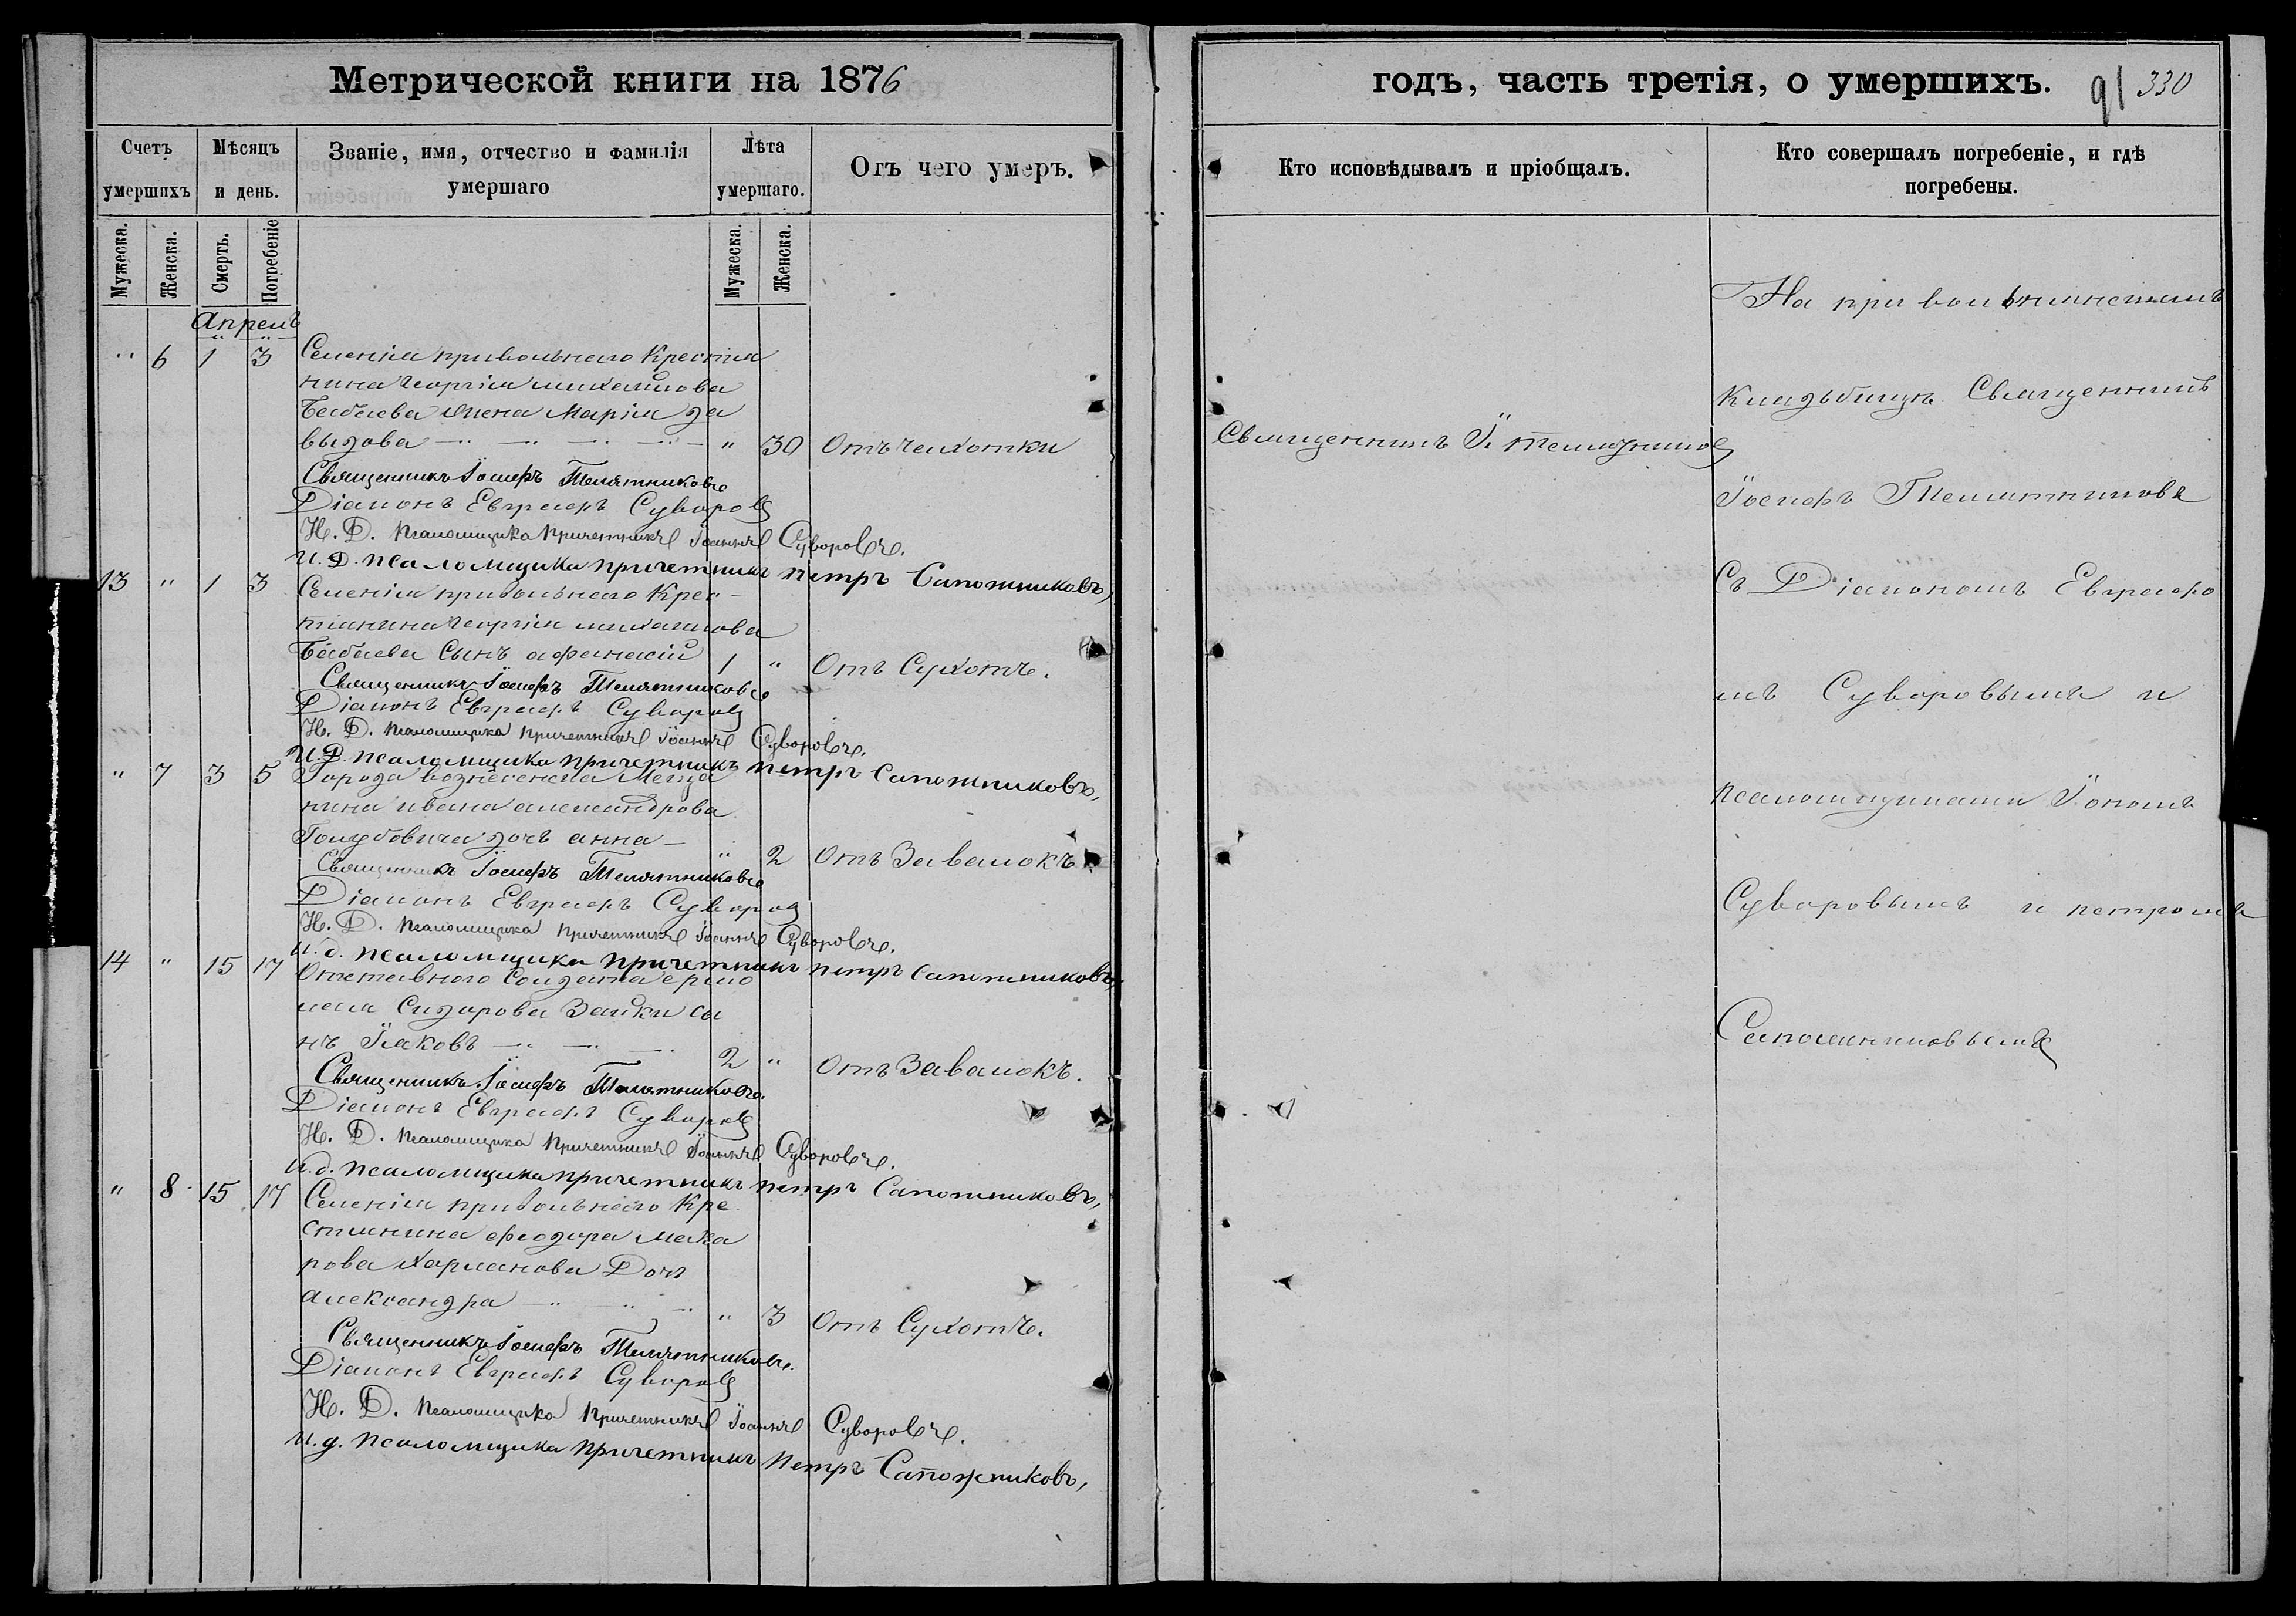 Метрической книги на 1876
Счетъ умершихъ
Мѣсяцъ и день.
Званіе, имя, отчество и фамилія умершаго
Лѣта умершаго.
Отъ чего умеръ.
Мужеска.
Женска.
Смерть.
Погребеніе
Мужеска.
Женска.
Апрель
" 6 1 3 Селенія привольнаго Крестья
нина Георгія михаилова
Бабаева жена Марія да
выдова " 30 Отъ чахотки
Священникъ Іосифъ Телятниковъ
Діаконъ Евграфъ Суворовъ
И. Д. Псаломщика Причетникъ Іоаннъ Суворовъ.
И. Д. псаломщика причетникъ петръ Сапожниковъ,
13 " 1 3 Селенія привольнаго Крес-
тянина Георгія михаилова
Бабаева Сынъ афанасій 1 " Отъ Сухотъ.
Священникъ Іосифъ Телятниковъ
Діаконъ Евграфъ Суворовъ
И. Д. Псаломщика Причетникъ Іоаннъ Суворовъ.
И. Д. псаломщика причетникъ петръ Сапожниковъ,
" 7 3 5 Города вознесенска Меща
нина ивана александрова
Голубовича дочь анна " 2 Отъ Завалокъ
Священникъ Іосифъ Телятниковъ
Діаконъ Евграфъ Суворовъ
И. Д. Псаломщика Причетникъ Іоаннъ Суворовъ.
и. д. псаломщика причетникъ петръ Сапожниковъ,
14 " 15 17 Отставного Солдата ермо
лая Сидорова Зайки сы
нъ Іаковъ 2 " Отъ Завалокъ.
Священникъ Іосифъ Телятниковъ.
Діаконъ Евграфъ Суворовъ
И. Д. Псаломщика Причетникъ Іоаннъ Суворовъ.
и. д. псаломщика причетникъ петръ Сапожниковъ,
" 8 15 17 Селенія привольнаго Кре
стянина феодора Мака
рова Харланова Дочь
александра " 3 Отъ Сухотъ.
Священникъ Іосифъ Телятниковъ.
Діаконъ Евграфъ Суворовъ
И. Д. Псаломщика Причетникъ Іоаннъ Суворовъ.
и. д. псаломщика причетникъ Петръ Сапожниковъ,
годъ, часть третія, о умершихъ.
91 330
Кто исповѣдывалъ и пріобщалъ.
Кто совершалъ погребеніе, и гдѣ погребены.
Священникъ І. Телятников
На привольнянскимъ
Кладьбищъ Священникъ
Іосифъ Телятниковъ
Съ Діакономъ Евграфо
мъ Суворовымъ и
псаломщиками Іономъ
Суворовымъ и петромъ
Сапожниковымъ